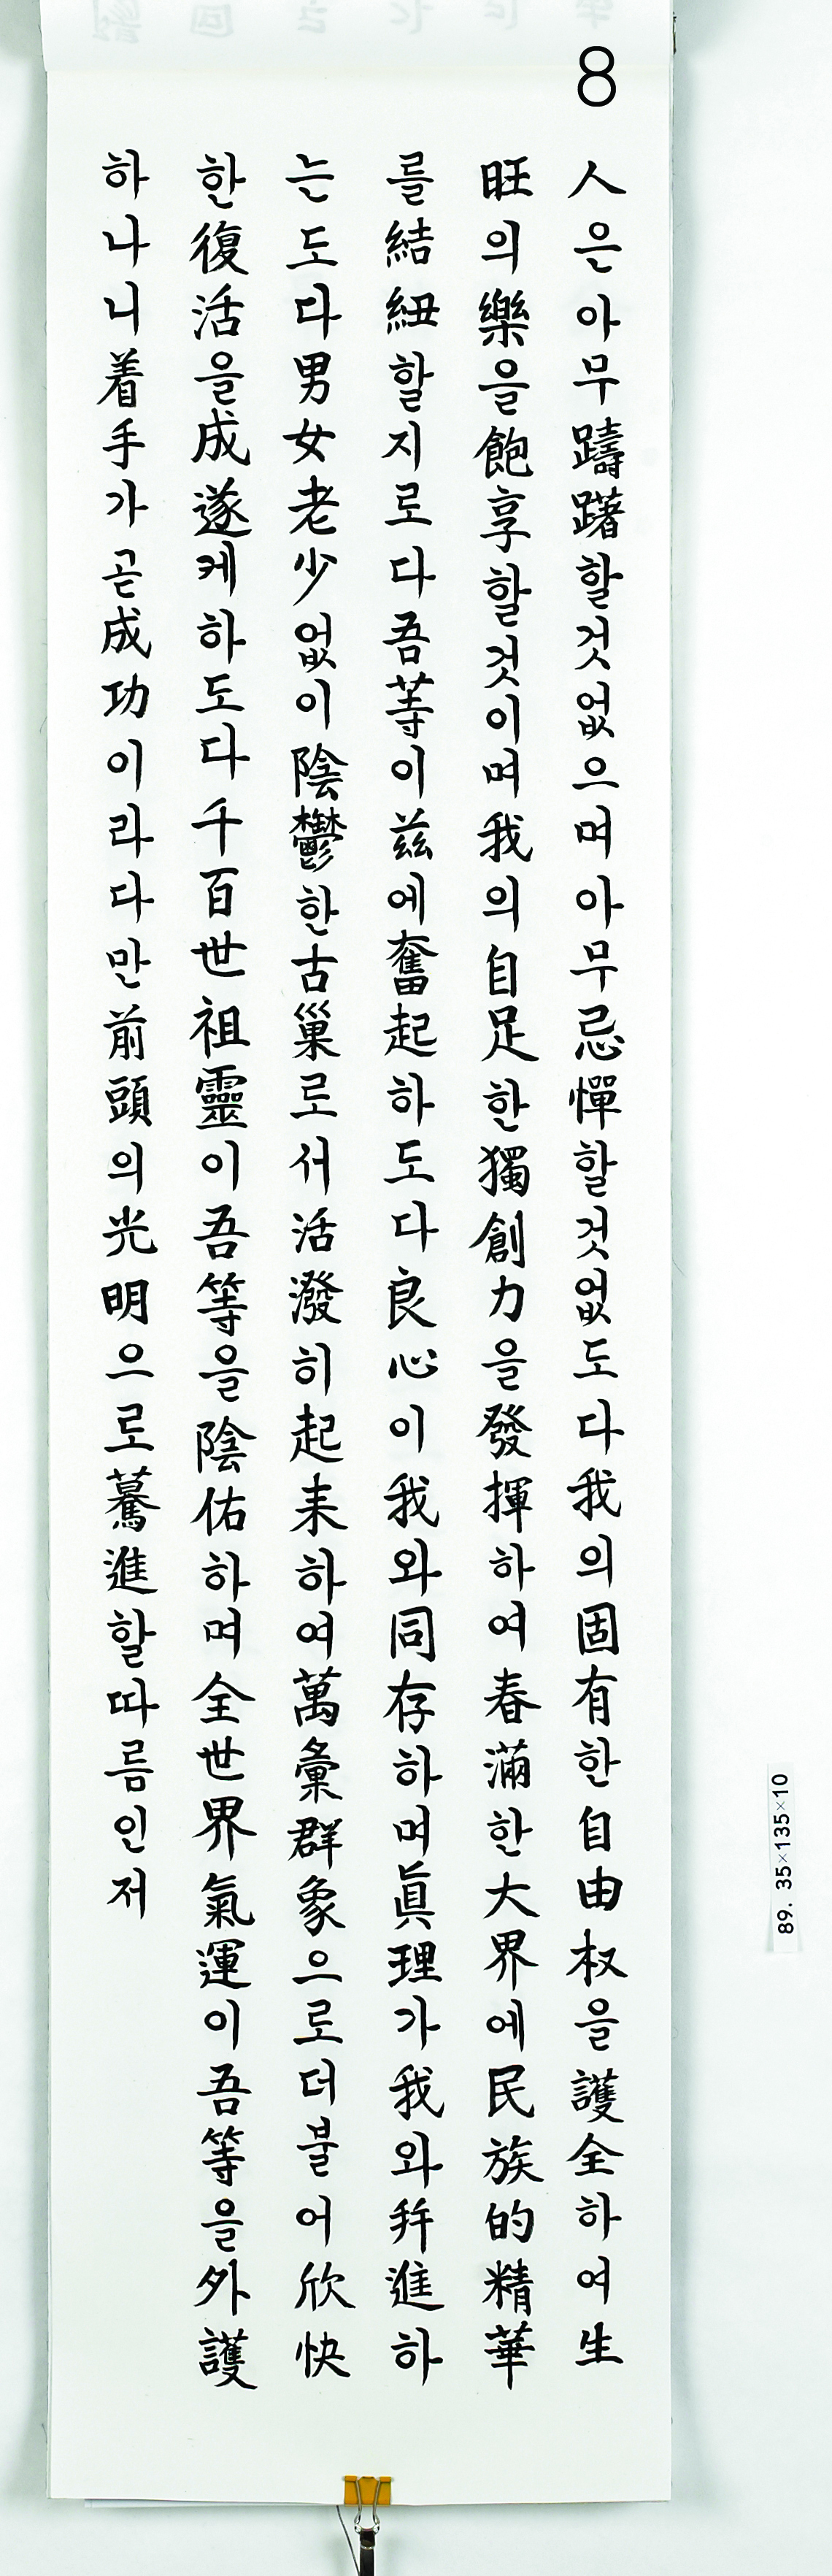 8
人은아무躊躇할것없으며아무忌憚할것없도다我의固有한自由权을護全하여生
旺의樂을飽享할것이며我의自足한獨創力을發揮하여春滿한大界에民族的精華
를結紐할지로다吾等이玆에奮起하도다良心이我와同存하며眞理가我와幷進하
는도다男女老少없이陰鬱한古巢로서活潑히起来하여萬彙群象으로더불어欣快
한復活을成遂케하도다千百世祖靈이吾等을陰佑하며全世界氣運이吾等을外護
하나니着手가곧成功이라다만前頭의光明으로驀進할따름인저
89. 35×135×10